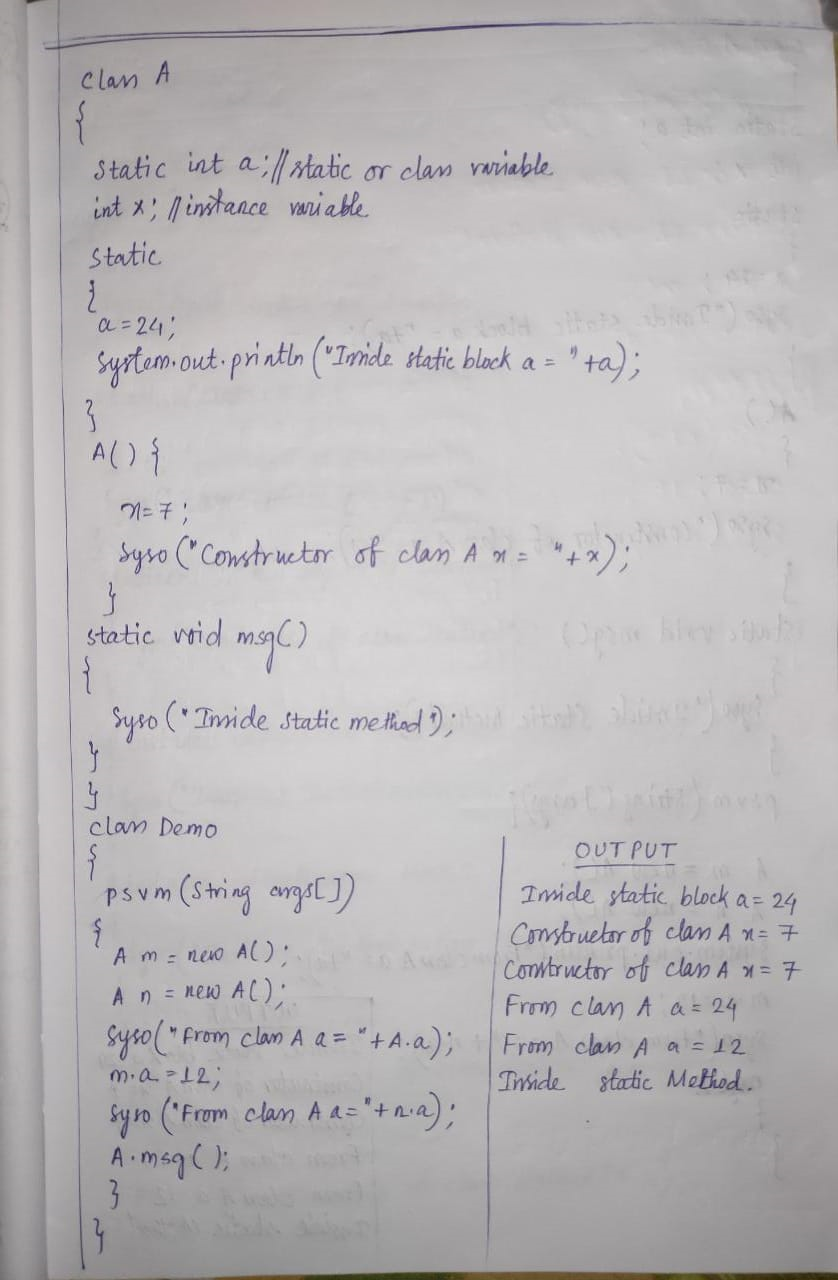 class A
{
static int a; // static or class variable
int x; // instance variable
static
{
a = 24;
System.out.println ("Inside static block a = " +a);
}
A() {
x = 7;
Syso ("Constructor of class A x = " + x);
}
static void msg()
{
Syso ("Inside static method");
}
}
class Demo
{
psvm (String args[])
{
A m = new A();
A n = new A();
Syso ("From class A a = " + A.a);
m.a = 12;
Syso ("From class A a = " + n.a);
A.msg ();
}
}
OUTPUT
Inside static block a = 24
Constructor of class A x = 7
Constructor of class A x = 7
From class A a = 24
From class A a = 12
Inside static Method.